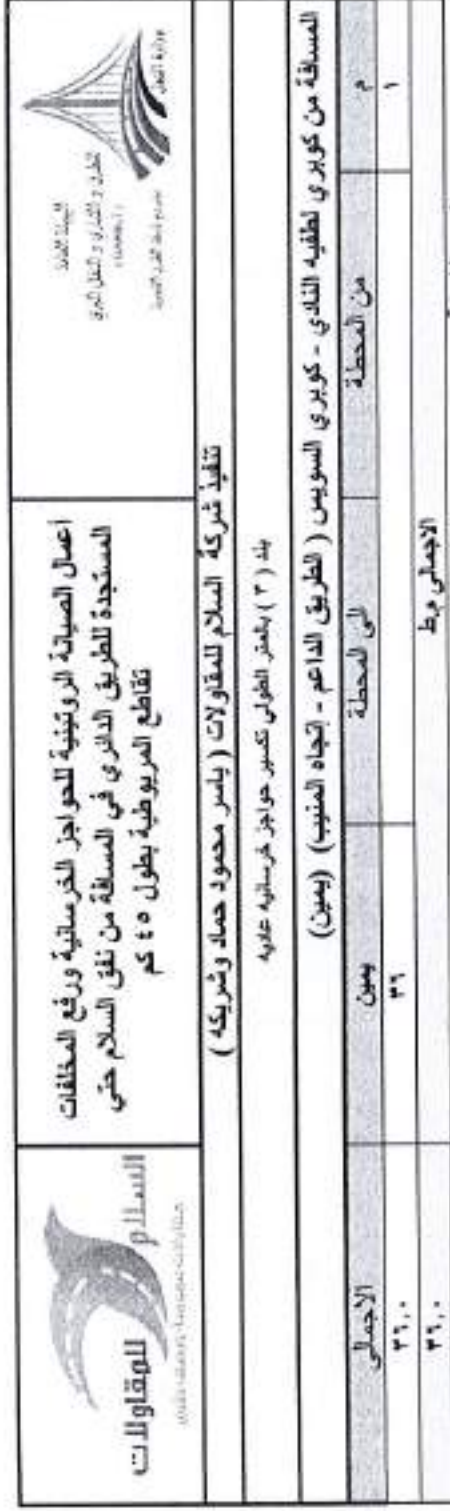 وزارة النقل
الهيئة العامة
للطرق و الكباري و النقل البري
أعمال الصيانة الروتينية للحواجز الخرسانية ورفع المخلفات
المستجدة للطريق الدائري في المسافة من نفق السلام حتي
تقاطع المريوطية بطول ٤٥ كم
السلام
للمقاولات
تنفيذ شركة السلام للمقاولات ( ياسر محمود حماد وشريكه )
بند ( ٣ ) بالمتر الطولى تكسير حواجز خرسانيه عاديه
المسافة من كوبري لطفيه النادي - كوبري السويس ( الطريق الداعم - إتجاه المنيب) (يمين)
م من المحطة الى المحطة يمين الاجمالى
١ ٣٦ ٣٦,٠
الاجمالى م.ط ٣٦,٠